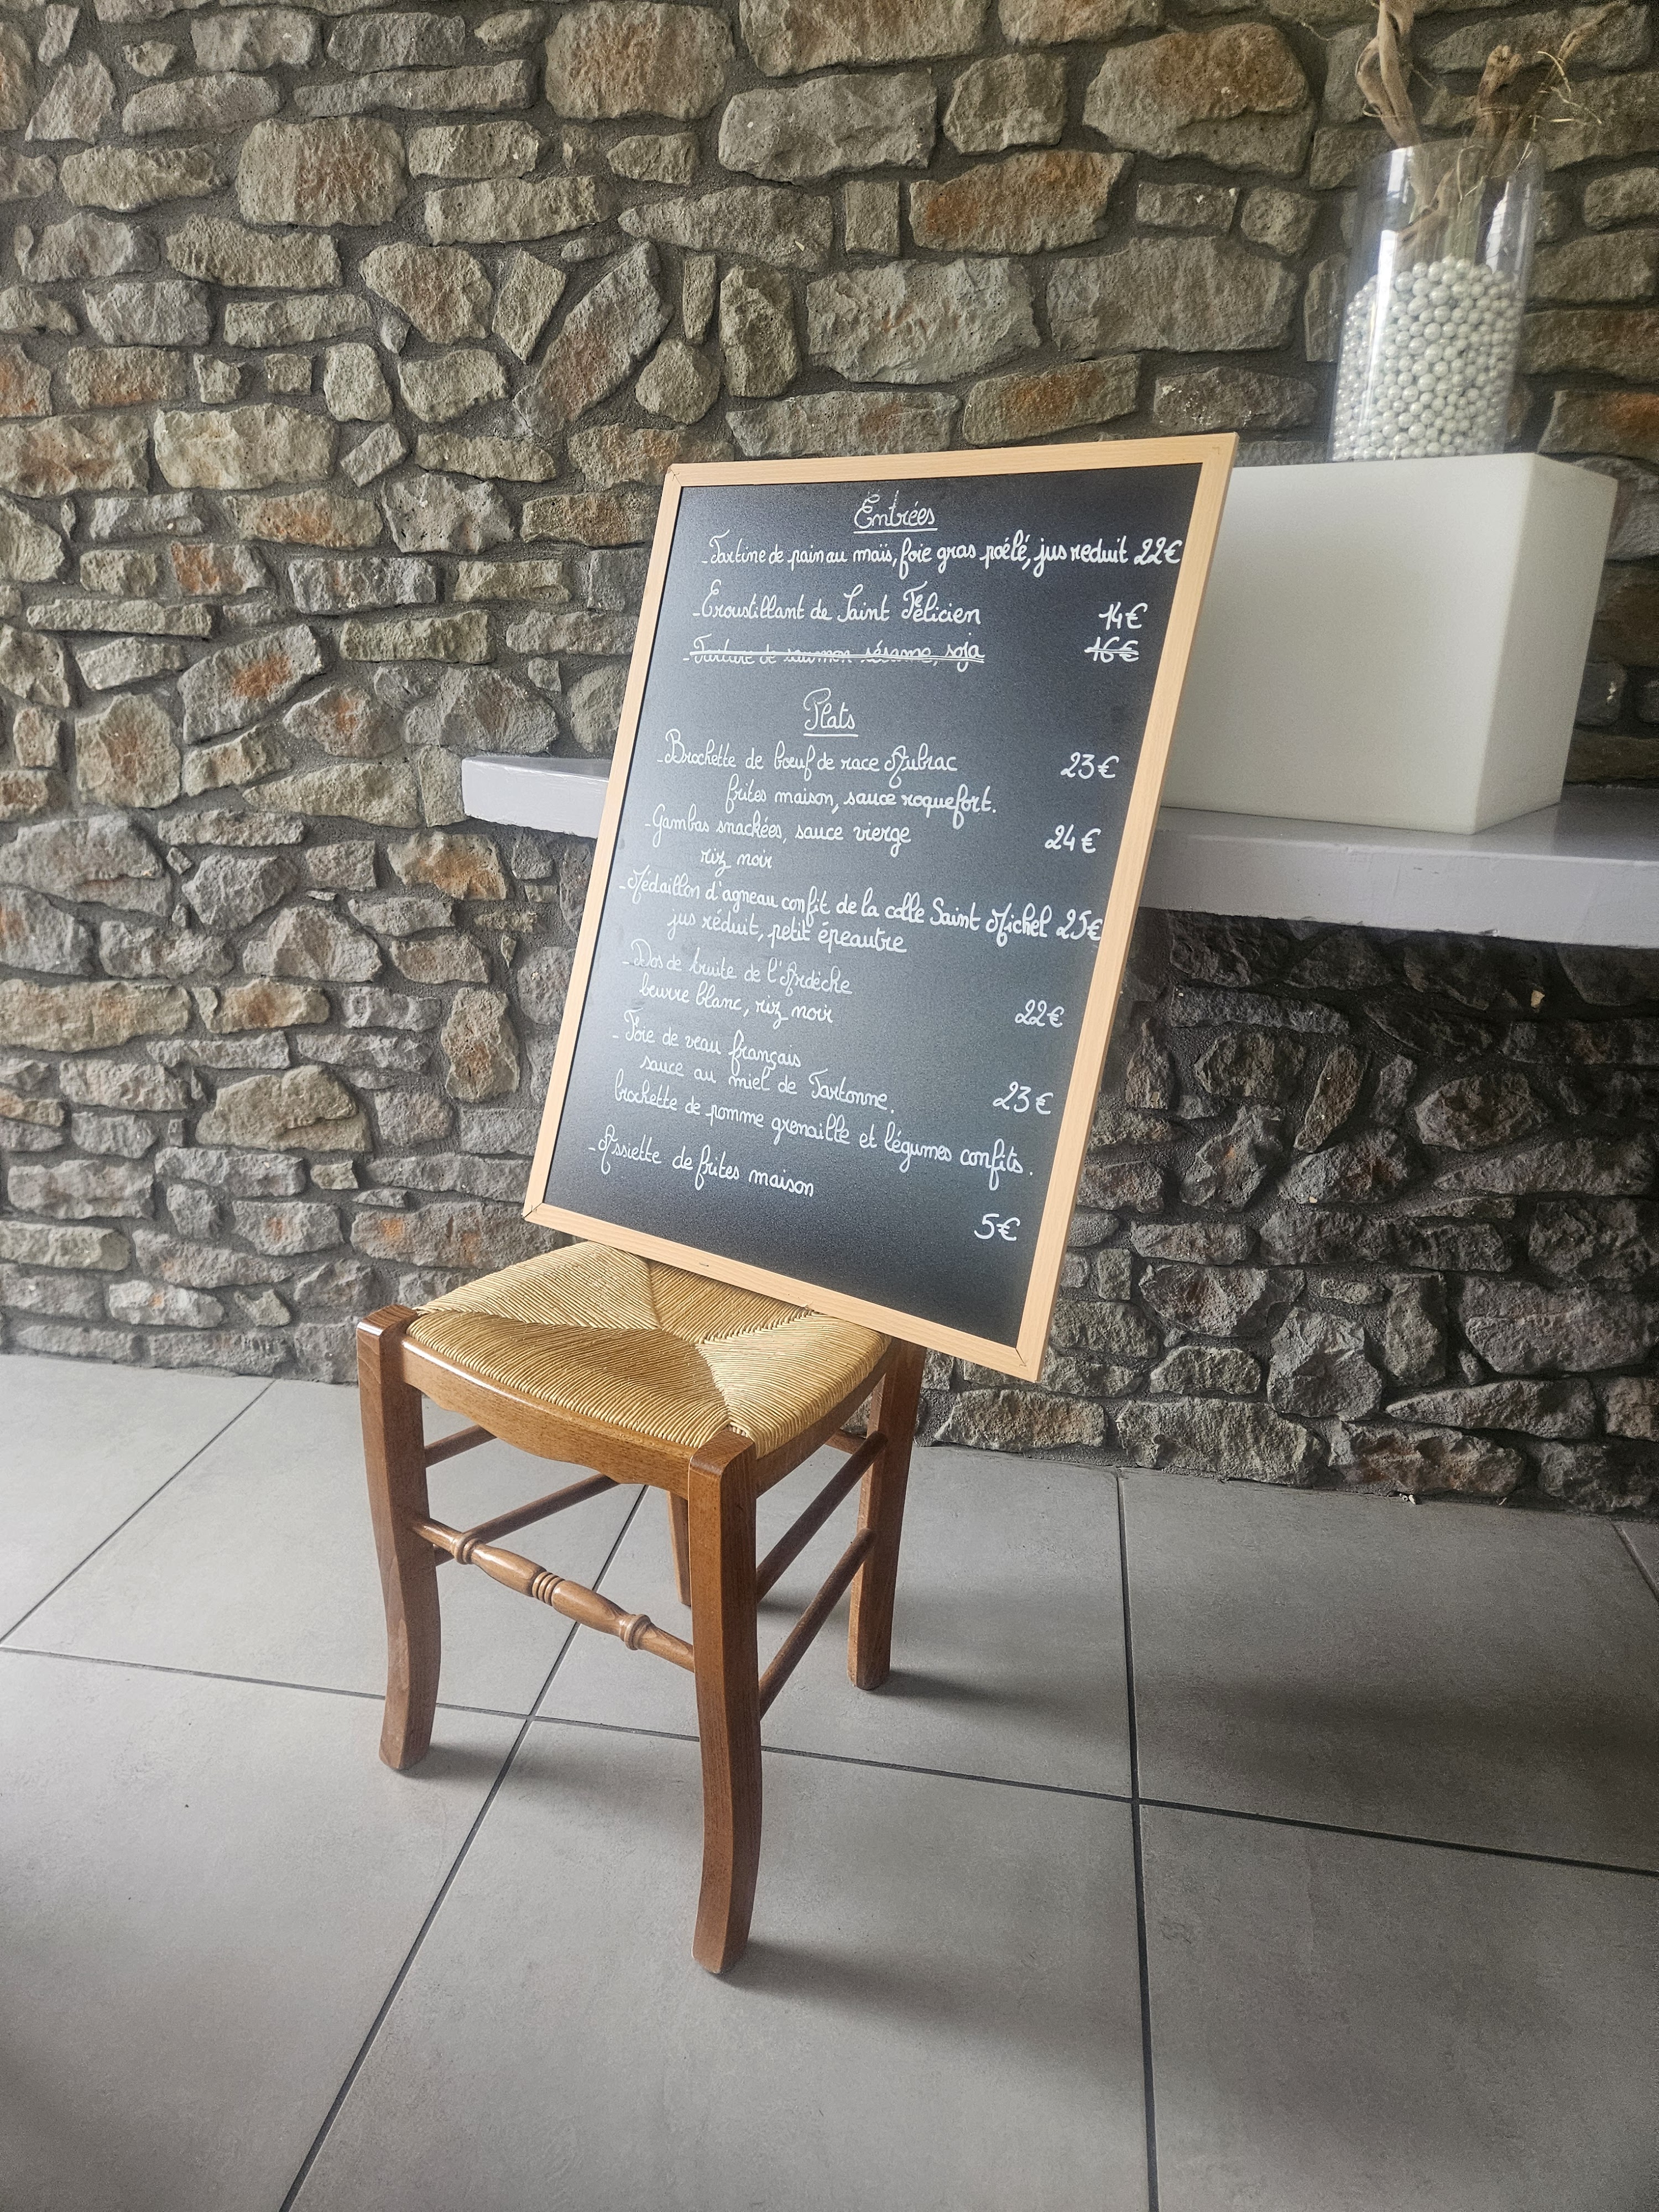 Entrées
- Tartine de pain au maïs, foie gras poélé, jus reduit 22€
- Croustillant de Saint Félicien 14€
- Tartare de saumon sésame, soja 16€
Plats
- Brochette de bœuf de race Aubrac 23€
frites maison, sauce roquefort.
- Gambas snackées, sauce vierge 24€
riz noir
- Médaillon d'agneau confit de la colle Saint Michel 25€
jus réduit, petit épeautre
- Dos de truite de l'Ardèche
beurre blanc, riz noir 22€
- Foie de veau français
sauce au miel de Tartonne. 23€
brochette de pomme grenaille et légumes confits.
- Assiette de frites maison
5€